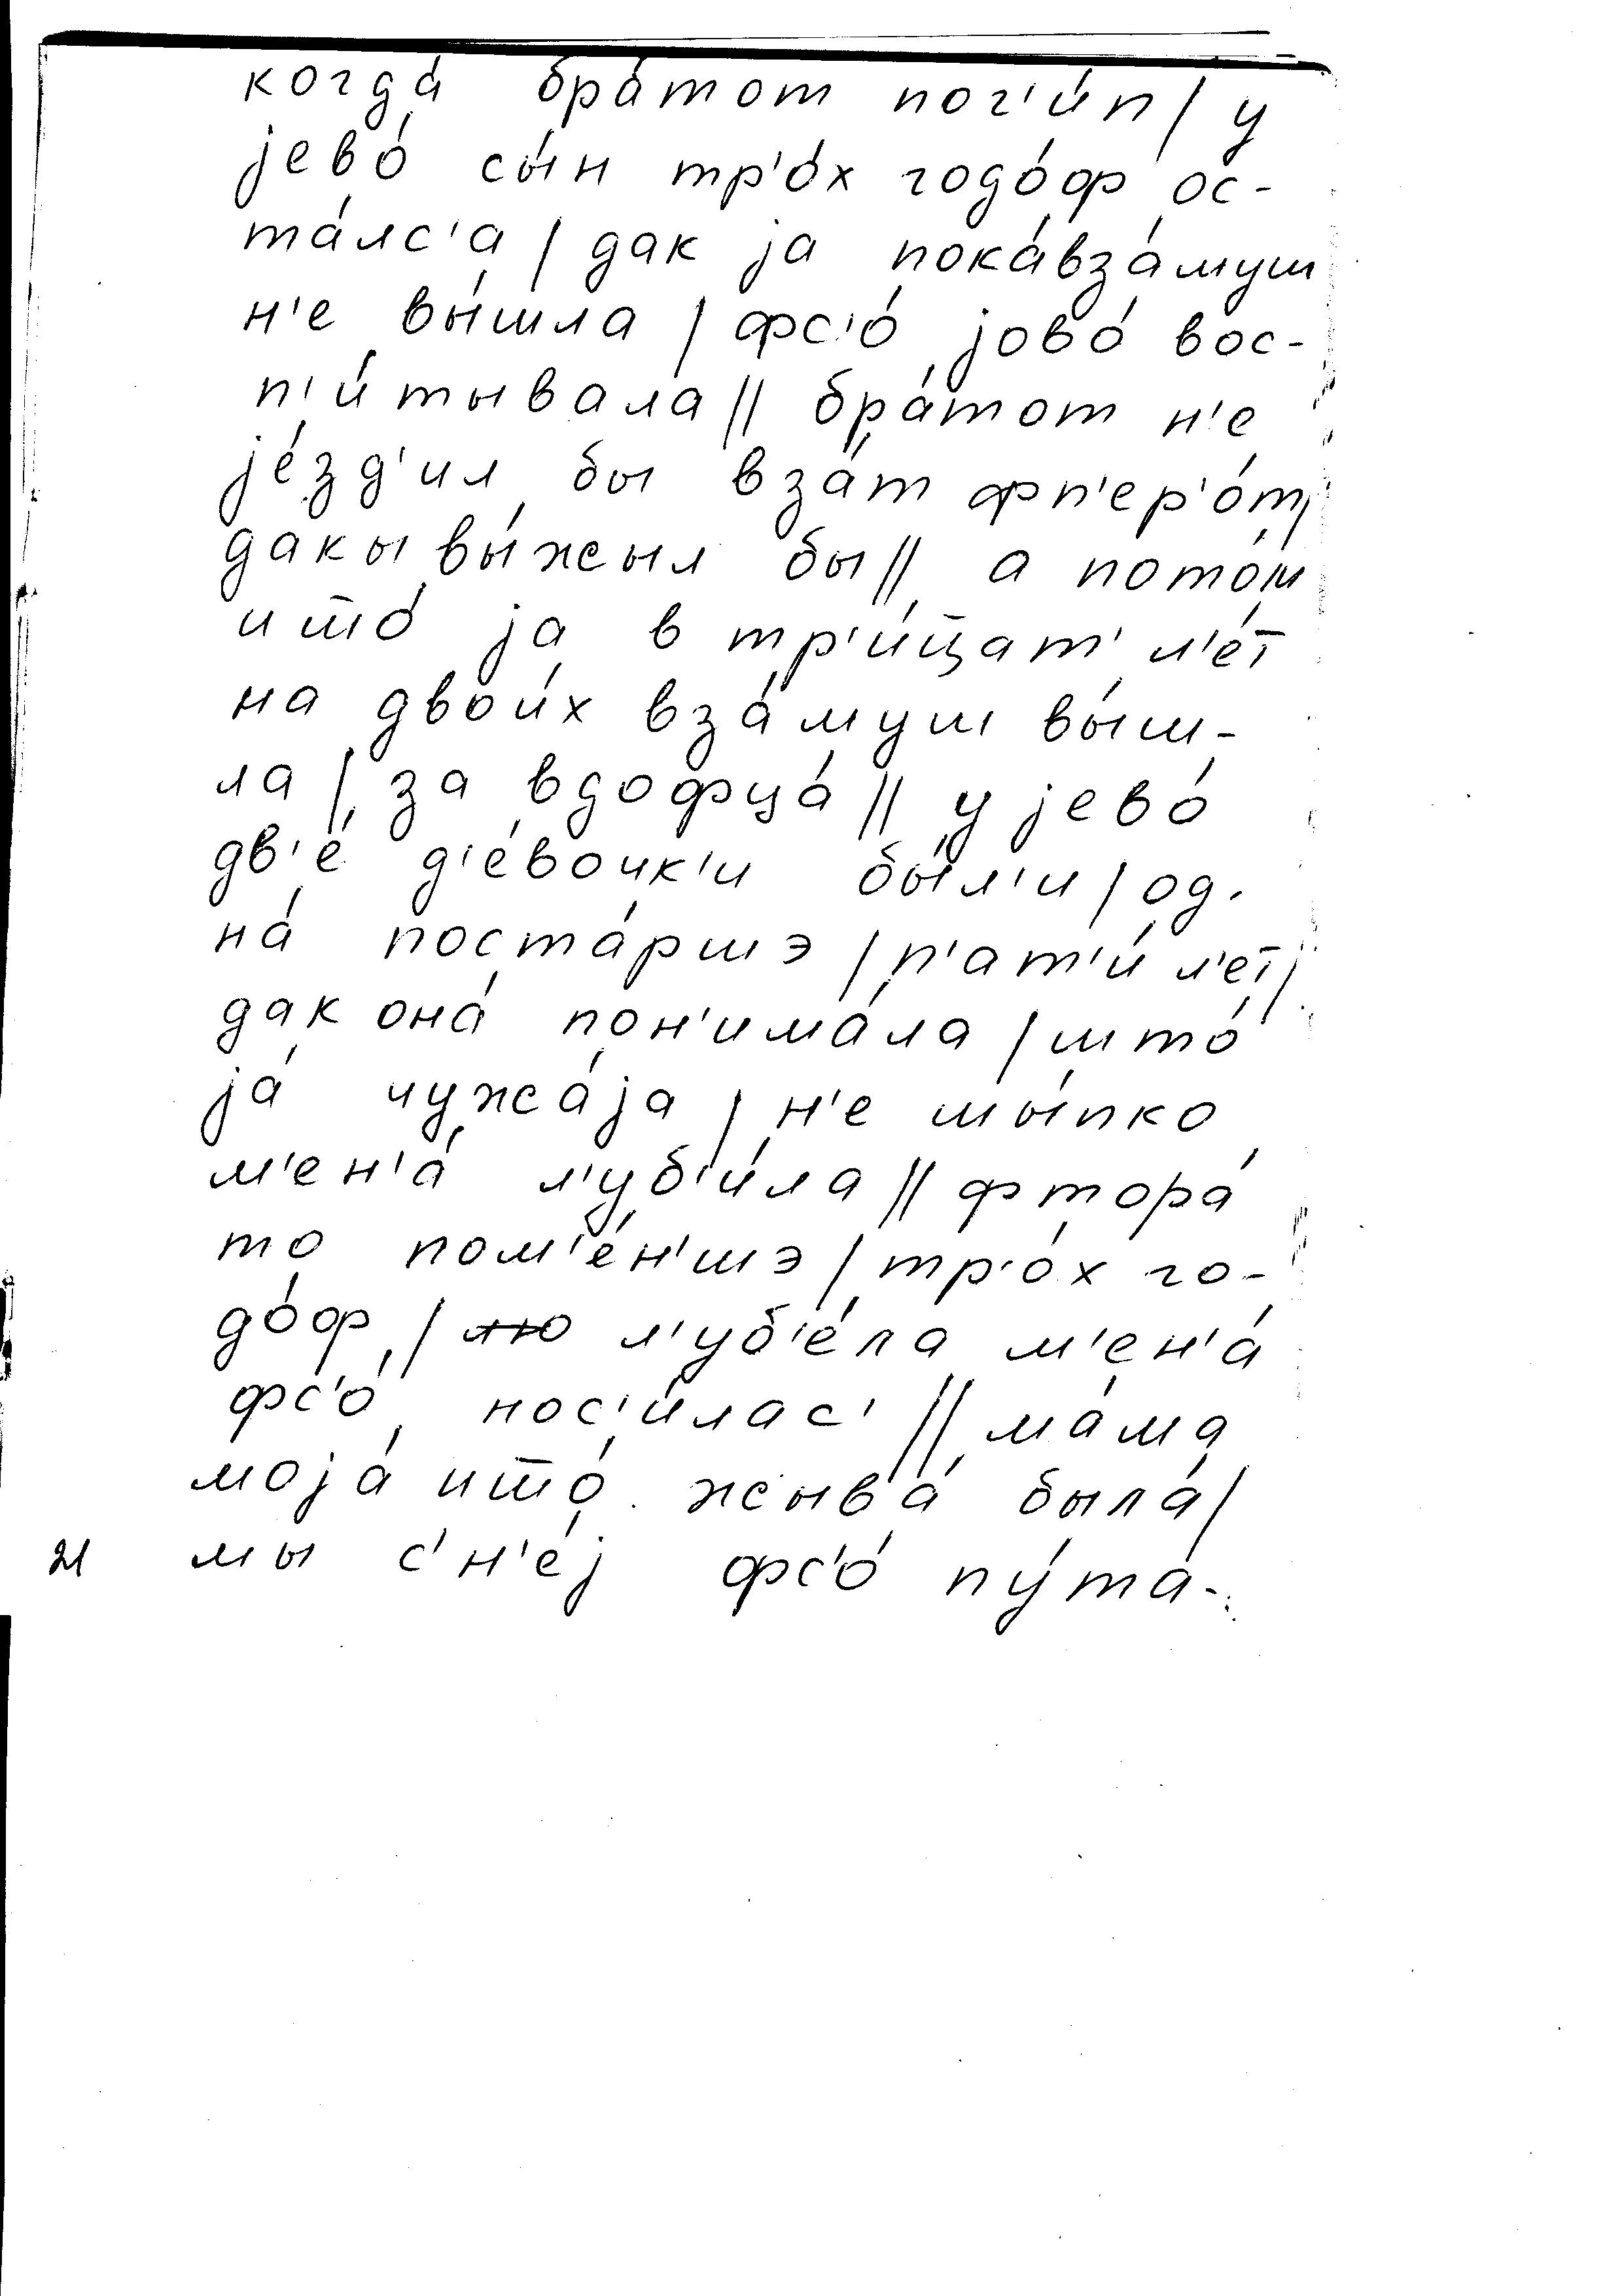 когда́ бра́тот пог'и́п / у
jево́ сы́н тр'о́х годо́ф ос-
та́лс'а / дак jа пока́вза́муш
н'е вы́шла / фс'о́ jово́ вос-
п'и́тывала // бра́тот н'е
jе́зд'ил бы вза́т фп'ер'о́т /
дакы вы́жыл бы // а пото́м
што́ jа в тр'и́цат' л'е́т
на двои́х вза́муш вы́ш-
ла / за вдофца́ // у jево́
дв'е́ д'е́вочк'и бы́л'и / од-
на́ поста́ршэ / п'ат'и́ л'ет /
дак она́ пон'има́ла / што́
jа́ чужа́jа / н'е шы́пко
м'ен'а́ л'уб'и́ла // фтора́
то пом'е́н'шэ / тр'о́х го-
до́ф / лю л'уб'е́ла м'ен'а́
фс'о́ нос'и́лас' // ма́ма
моjа́ што́ жыва́ была́ /
21 мы с'н'е́j фс'о́ пу́та-